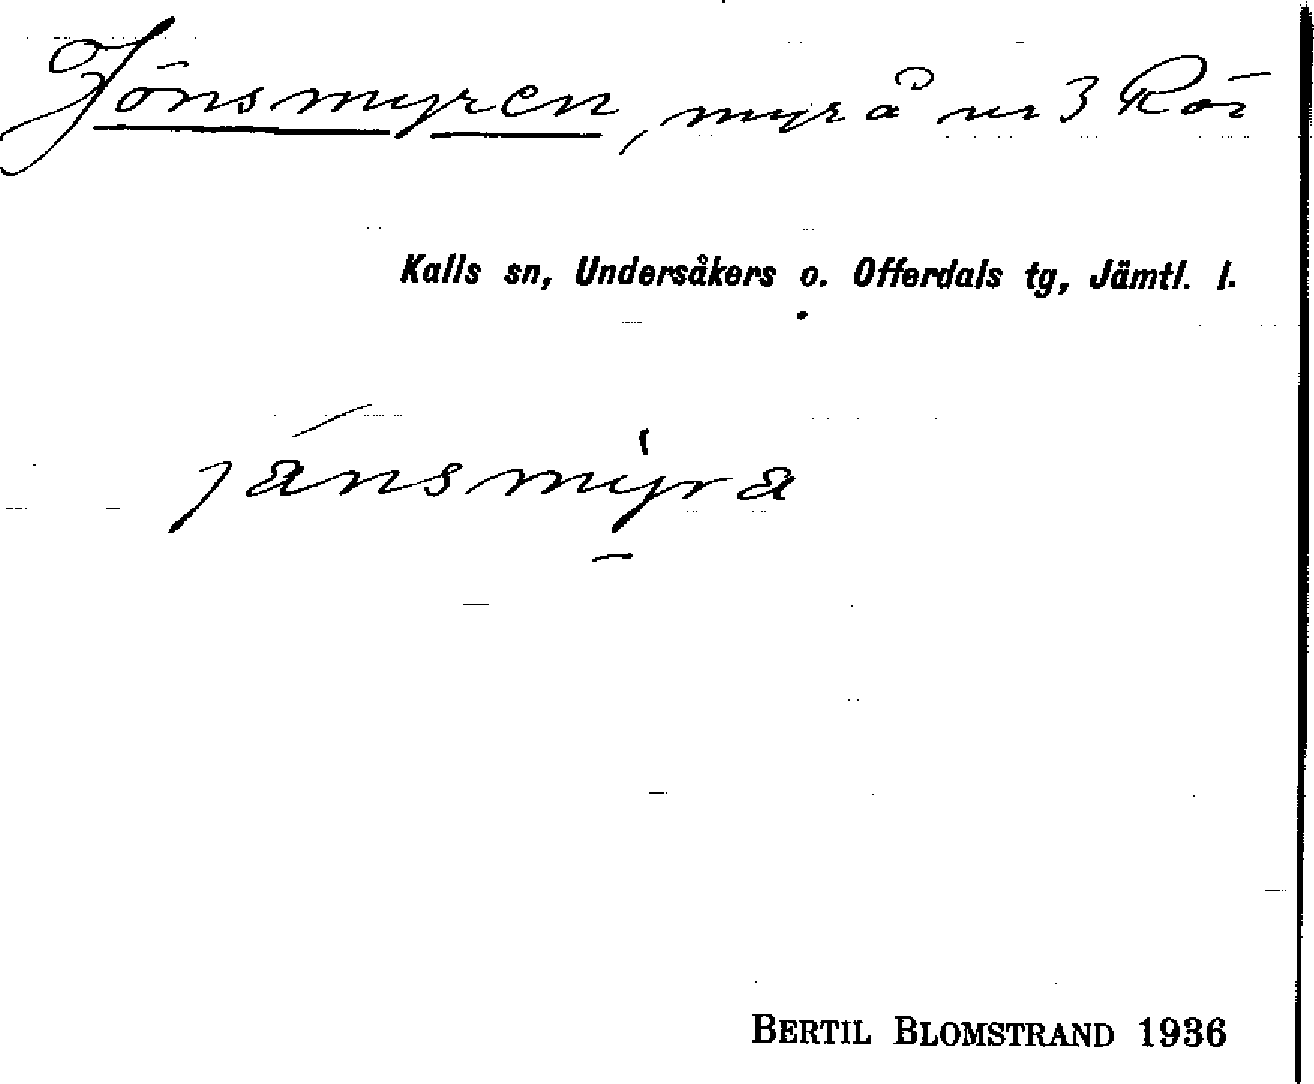 Jönsmyren, myr å nr 3 Rör
Kalls sn, Undersåkers o. Offerdals tg, Jämtl. l.
jänsmyra
BERTIL BLOMSTRAND 1936